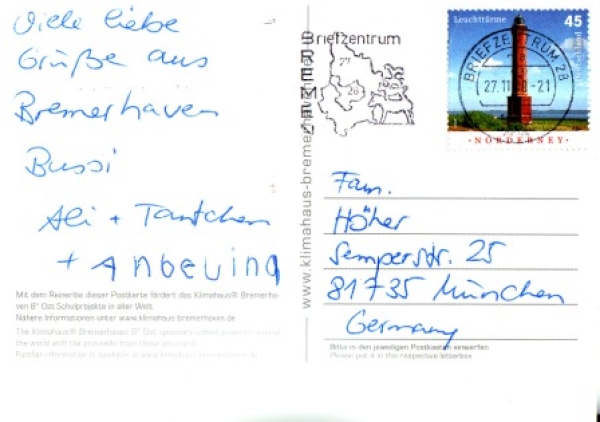 Viele liebe
Grüße aus
Bremerhaven
Bussi
Ali + Tantchen
+ Anbeving
Mit dem Reinerlös dieser Postkarte fördert das Klimahaus® Bremerha-
ven 8° Ost Schulprojekte in aller Welt.
Nähere Informationen unter www.klimahaus-bremerhaven.de
The Klimahaus® Bremerhaven 8° Ost sponsors school projects around
the world with the proceeds from these postcards.
Further information is available at www.klimahaus-bremerhaven.de
www.klimahaus-bremerhaven.de
Briefzentrum
BREMEN
27
28
Leuchttürme
45
Deutschland
BRIEFZENTRUM 28
27.11.08-21
NORDERNEY
Fam.
Höher
Semperstr. 25
81735 München
Germany
Bitte in den jeweiligen Postkasten einwerfen
Please put it in the respective letterbox